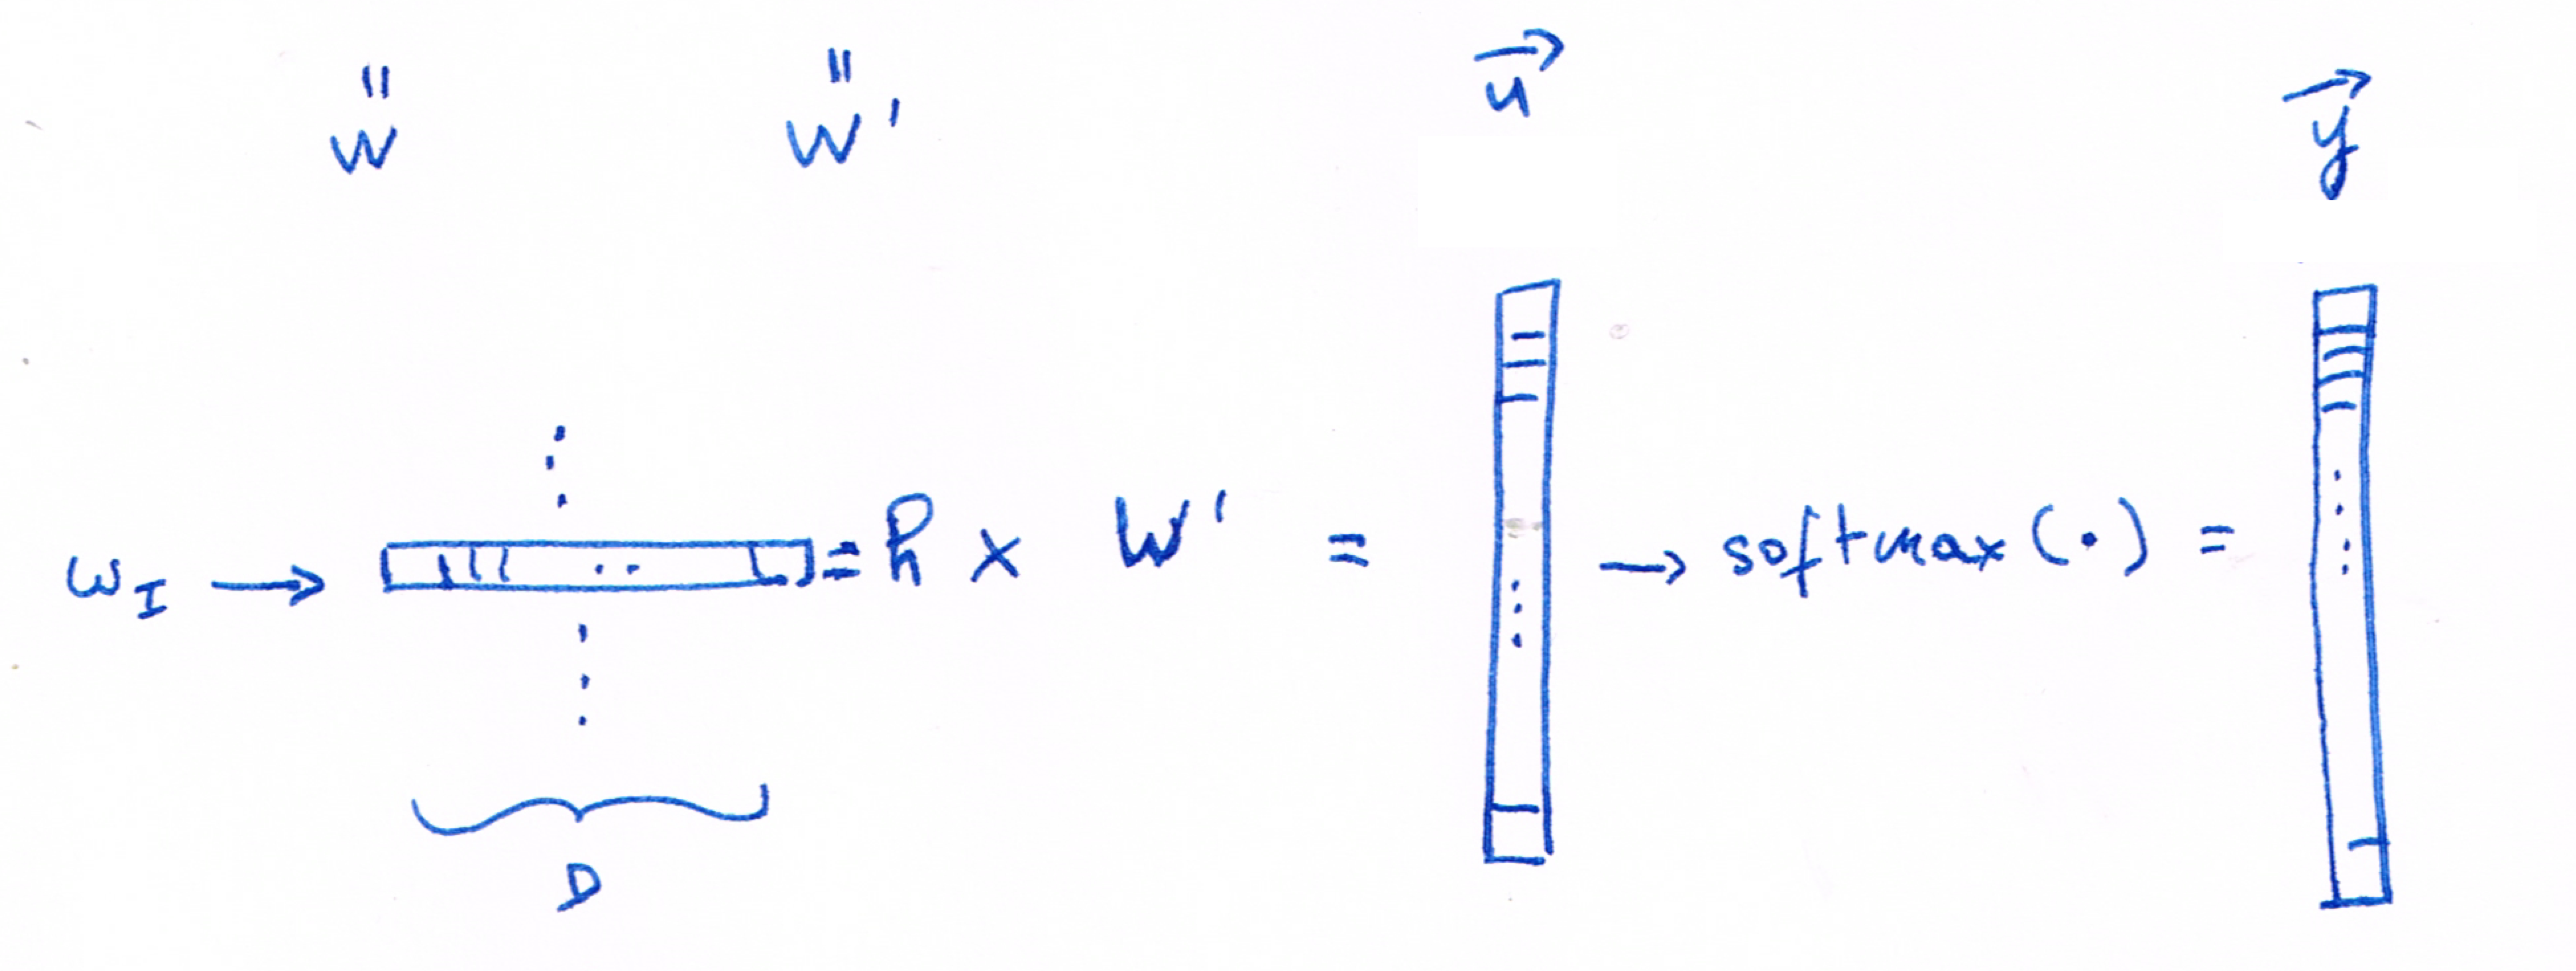 " "
W W' u⃗ y⃗
w_I → = h × W' = → softmax(·) =
D